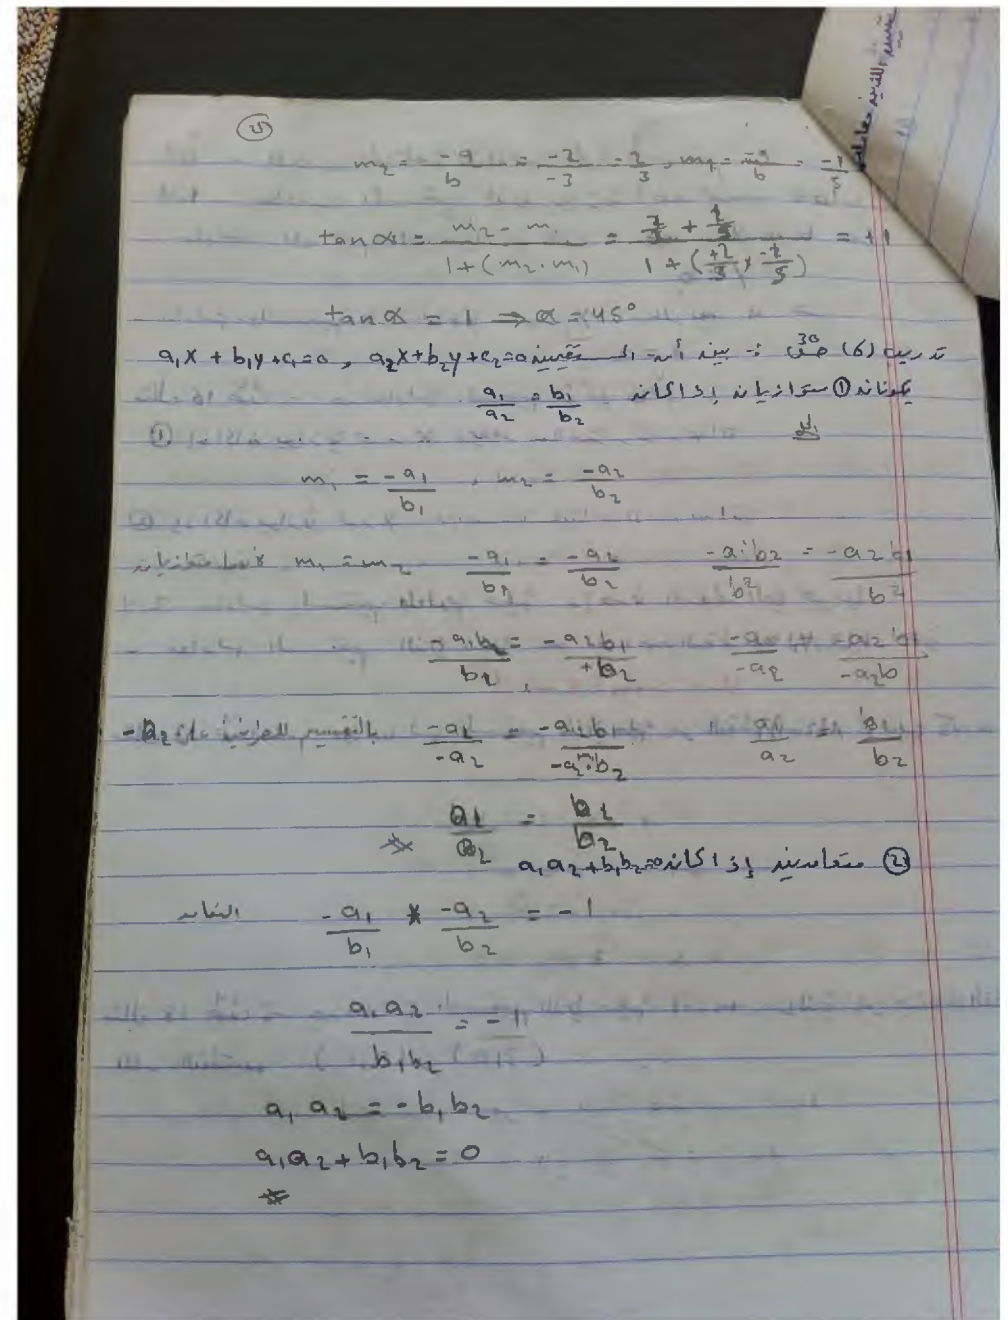 ٢٥
m₂ = -a/b = -2/-3 = 2/3 , m₁ = -a/b = -1/5
tan α = (m₂ - m₁)/(1+(m₂·m₁)) = (2/3 + 1/5)/(1+(+2/3 × -1/5)) = +1
tan α = 1 ⇒ α = 45°
تدريب (6) ص 30 :- بين أن المستقيمين a₁x + b₁y + c₁ = 0 , a₂x + b₂y + c₂ = 0
يكونان ① متوازيان إذا كان a₁/a₂ = b₁/b₂
الحل
m₁ = -a₁/b₁ , m₂ = -a₂/b₂
m₁ = m₂ -a₁/b₁ = -a₂/b₂ -a₁b₂/b₂ = -a₂b₁/b₂
-a₁b₂/b₂ = -a₂b₁/+b₂
بالتقسيم للطرفين على -a₂ -a₁/-a₂ = -a₂b₁/-a₂·b₂ a₁/a₂ = b₁/b₂
a₁/a₂ = b₁/b₂
② متعامدين إذا كان a₁a₂ + b₁b₂ = 0
التعامد -a₁/b₁ * -a₂/b₂ = -1
a₁a₂/b₁b₂ = -1
a₁a₂ = -b₁b₂
a₁a₂ + b₁b₂ = 0